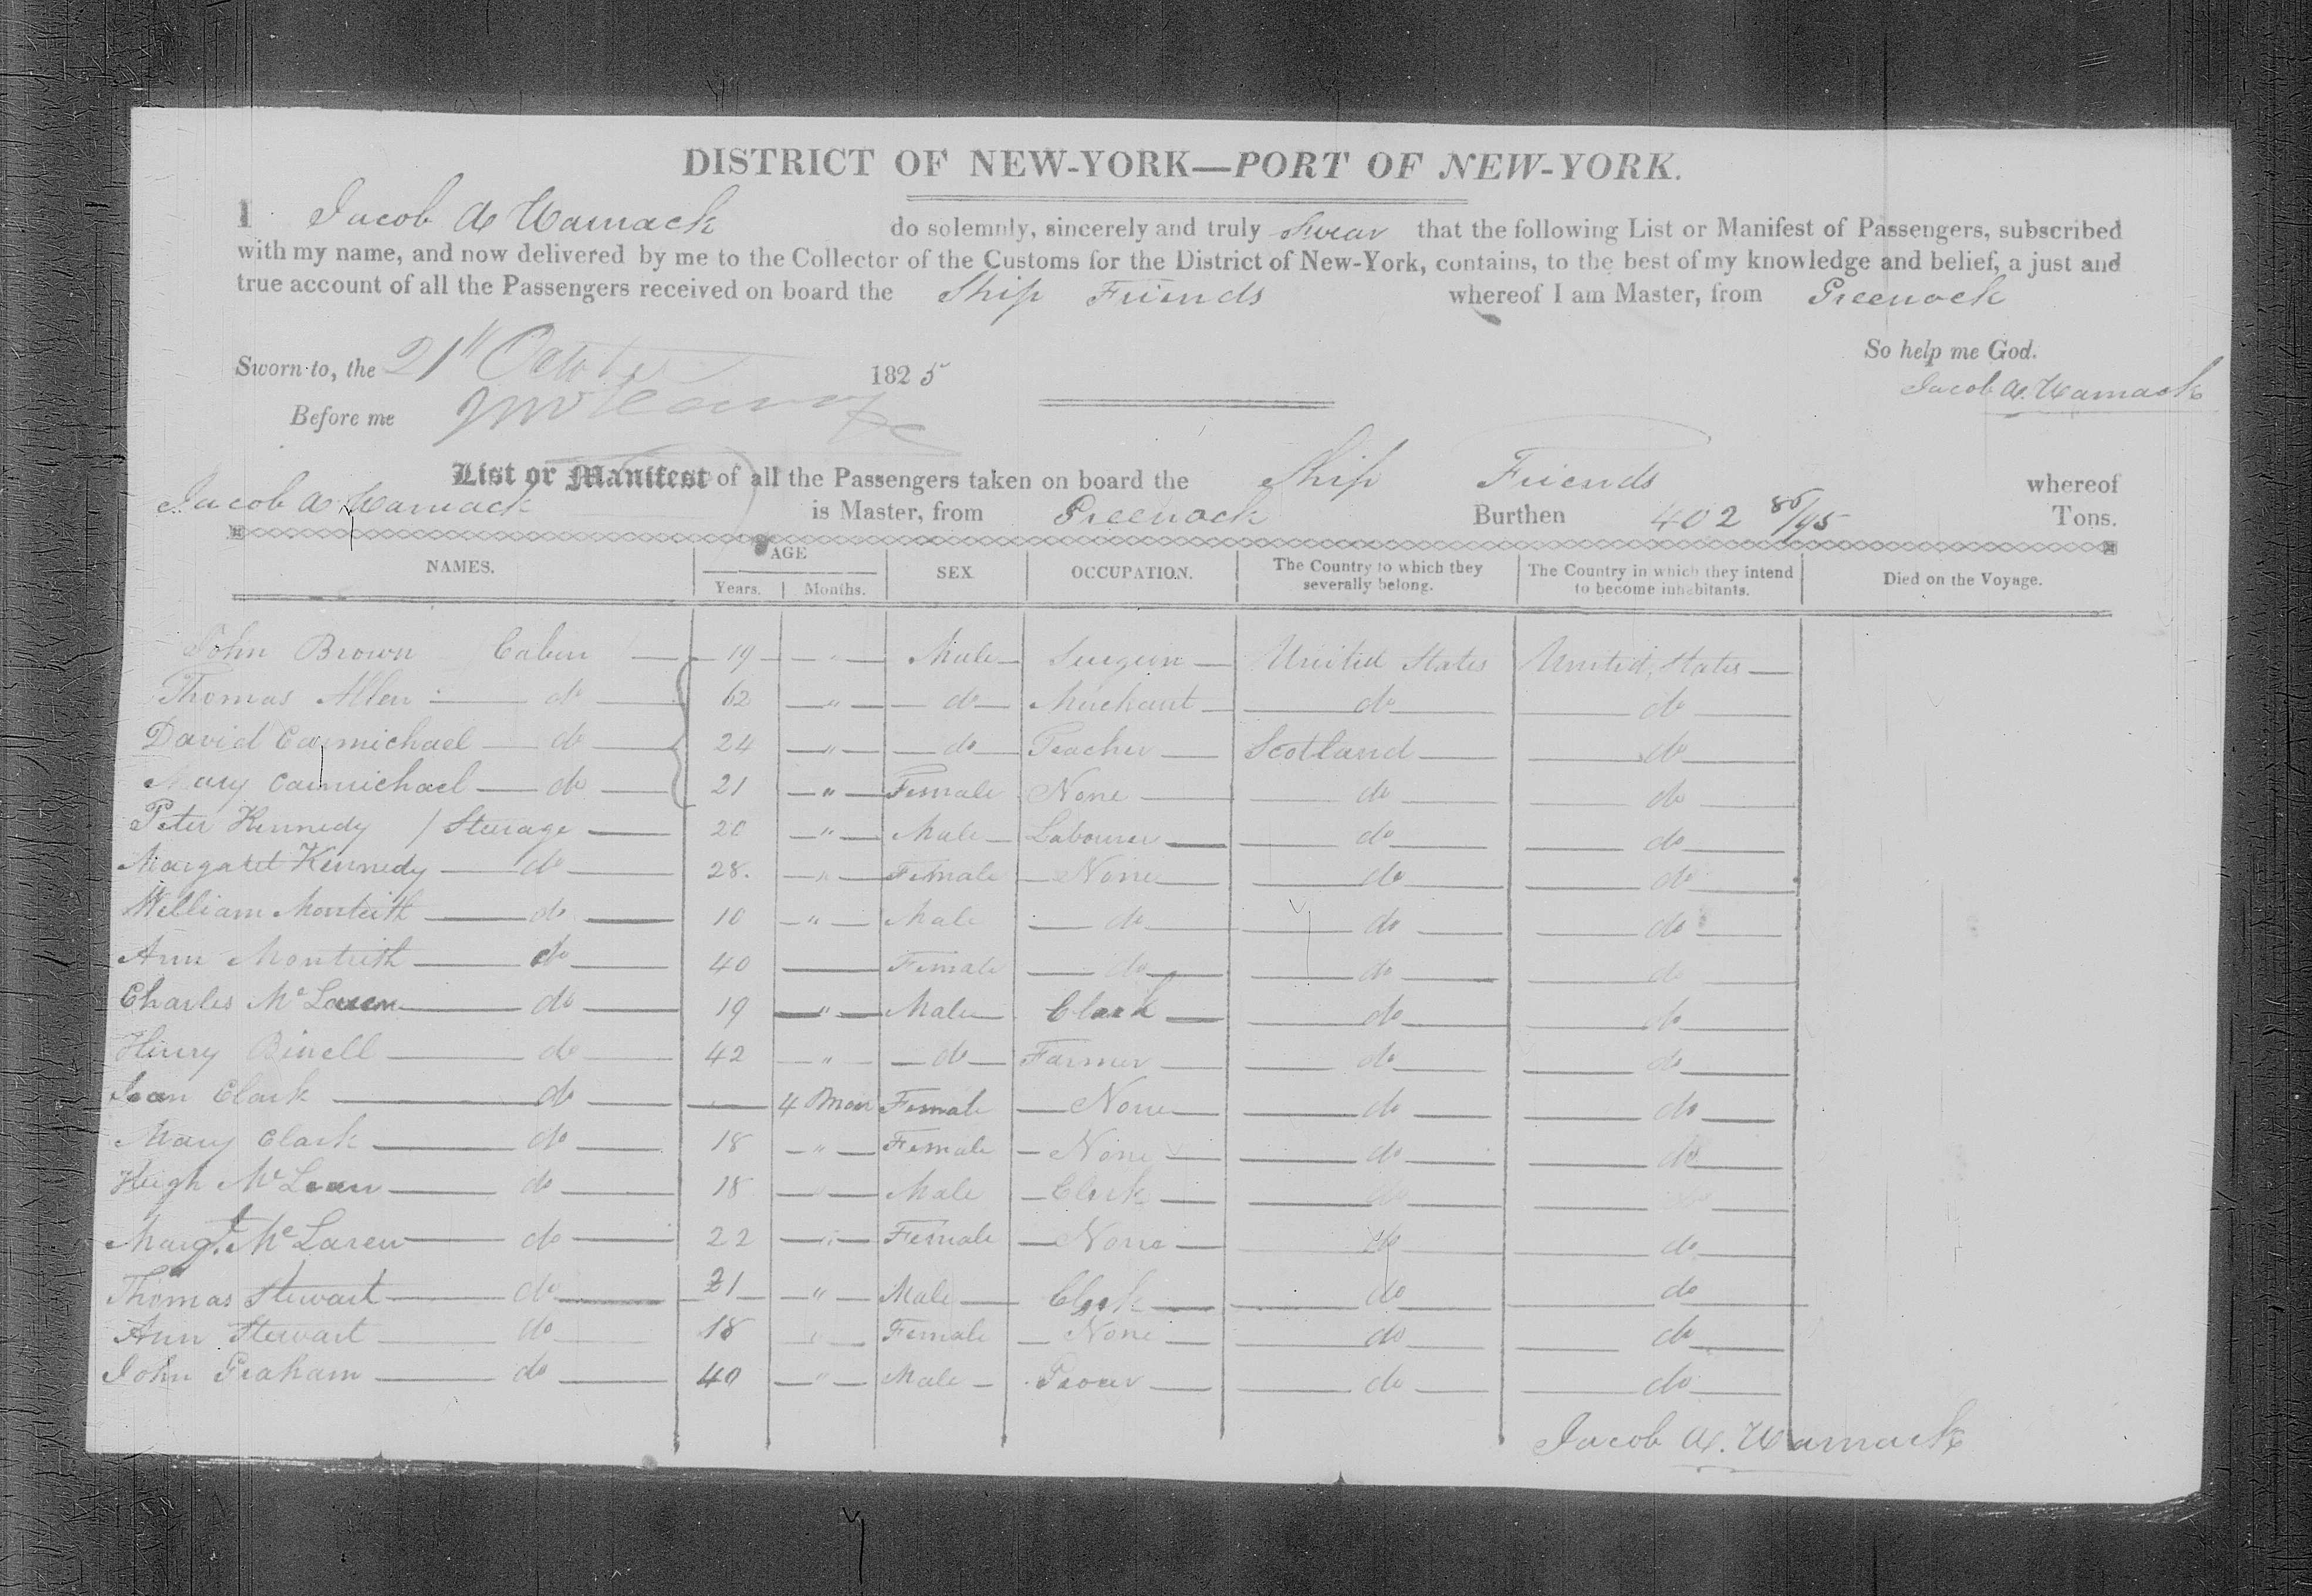 DISTRICT OF NEW-YORK—PORT OF NEW-YORK.
I Jacob A Wamack do solemnly, sincerely and truly Swear that the following List or Manifest of Passengers, subscribed
with my name, and now delivered by me to the Collector of the Customs for the District of New-York, contains, to the best of my knowledge and belief, a just and
true account of all the Passengers received on board the Ship Friends whereof I am Master, from Greenock
So help me God.
Sworn to, the 21st October 1825
Jacob A. Wamack
Before me
List or Manifest of all the Passengers taken on board the Ship Friends whereof
Jacob A Wamack is Master, from Greenock Burthen 402 86/95 Tons.
NAMES. AGE Years. Months. SEX. OCCUPATION. The Country to which they severally belong. The Country in which they intend to become inhabitants. Died on the Voyage.
John Brown Cabin — 19 — " — Male — Surgeon — United States United States —
Thomas Allen — do — 62 — " — do — Merchant — do — do —
David Carmichael — do — 24 — " — do — Teacher — Scotland — do —
Mary Carmichael — do — 21 — " — Female None — do — do —
Peter Kennedy / Steerage — 20 — " — Male — Labourer — do — do —
Margaret Kennedy — do — 28. — " — Female — None — do — do —
William Monteith — do — 10 — " — Male — do — do — do —
Ann Monteith — do — 40 — Female — do — do — do —
Charles McLaren — do — 19 — " — Male — Clark — do — do —
Henry — do — 42 — " — do — Farmer — do — do —
Jean Clark — do — 4 Mon Female — None — do — do —
Mary Clark — do — 18 — " — Female — None — do — do —
Hugh McLean — do — 18 — " — Male — Clerk — do —
Margt. McLaren — do — 22 — " — Female — None — do — do —
Thomas Stewart — do — 21 — " — Male — Clerk — do — do —
Ann Stewart — do — 18 " Female — None — do — do —
John Graham — do — 40 — " — Male — — do — do —
Jacob A. Wamack